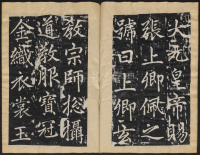 大元皇帝賜
張上卿佩之
號曰上卿玄
教宗師總攝
道教服寶冠
金織衣裳玉